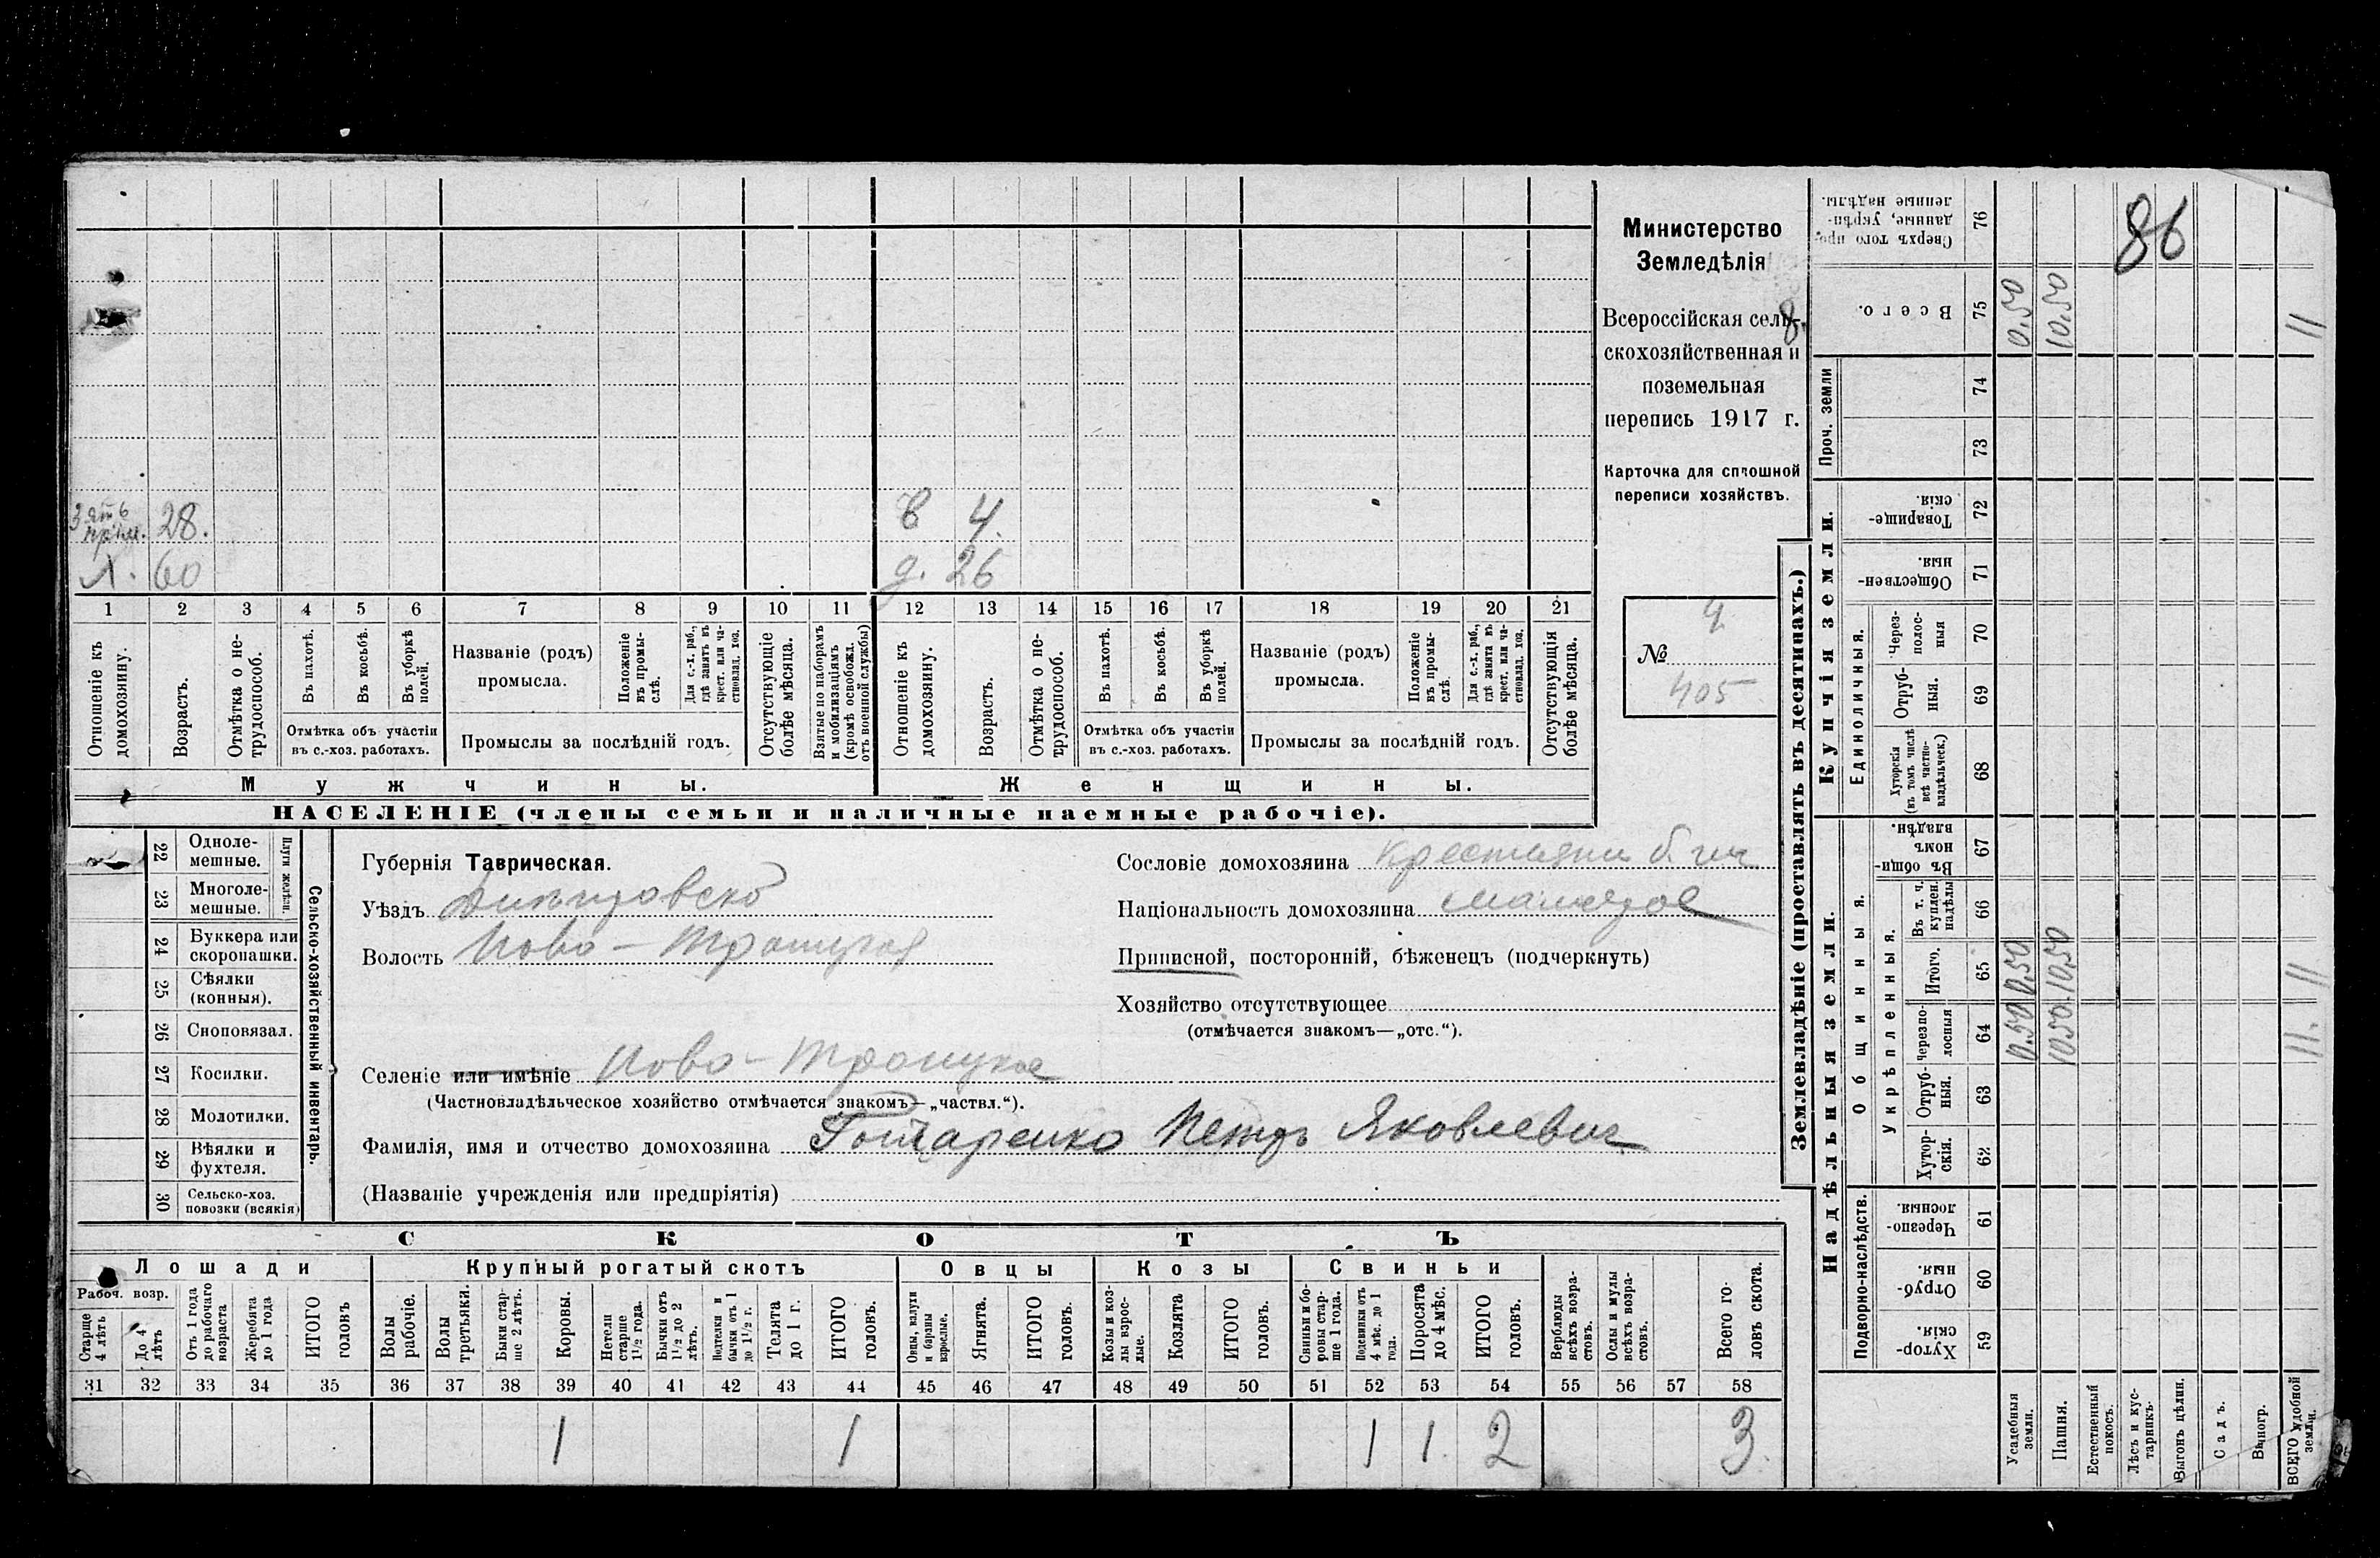 Министерство
Земледѣлія
Всероссійская сель-
скохозяйственная и
поземельная
перепись 1917 г.
Карточка для сплошной
переписи хозяйствъ.
№ 4
405
8.
86
зять
прім. 28.
60
в 4.
д. 26
1 2 3 4 5 6 7 8 9 10 11 12 13 14 15 16 17 18 19 20 21
Отношеніе къ домохозяину.
Возрастъ.
Отмѣтка о не-трудоспособ.
Въ пахотѣ.
Въ косьбѣ.
Въ уборкѣ полей.
Отмѣтка объ участіи
въ с.-хоз. работахъ.
Названіе (родъ)
промысла.
Положеніе въ промы-слѣ.
Для с.-х. раб., гдѣ занятъ въ крест. или ча-стновлад. хоз.
Промыслы за послѣдній годъ.
Отсутствующіе болѣе мѣсяца.
Взятые по наборамъ и мобилизаціямъ (кромѣ освобожд. отъ военной службы)
Отношеніе къ домохозяину.
Возрастъ.
Отмѣтка о не-трудоспособ.
Въ пахотѣ.
Въ косьбѣ.
Въ уборкѣ полей.
Отмѣтка объ участіи
въ с.-хоз. работахъ.
Названіе (родъ)
промысла.
Положеніе въ промы-слѣ.
Для с.-х. раб., гдѣ занята въ крест. или ча-стновлад. хоз.
Промыслы за послѣдній годъ.
Отсутствующія болѣе мѣсяца.
Мужчины.
Женщины.
НАСЕЛЕНІЕ (члены семьи и наличные наемные рабочіе).
22 Одноле-мешные.
23 Многоле-мешные.
Плуги желѣзн.
24 Буккера или скоропашки.
25 Сѣялки (конныя).
26 Сноповязал.
27 Косилки.
28 Молотилки.
29 Вѣялки и фухтеля.
30 Сельско-хоз. повозки (всякія)
Сельско-хозяйственный инвентарь.
Губернія Таврическая.
Уѣздъ
Волость Ново-Троицкая
Селеніе или имѣніе Ново-Троицкое
(Частновладѣльческое хозяйство отмѣчается знакомъ—„частвл.“).
Фамилія, имя и отчество домохозяина Гончаренко Петръ Яковлевич
(Названіе учрежденія или предпріятія)
Сословіе домохозяина
Національность домохозяина малоросс
Приписной, посторонній, бѣженецъ (подчеркнуть)
Хозяйство отсутствующее
(отмѣчается знакомъ—„отс.“).
СКОТЪ
Лошади
Крупный рогатый скотъ
Овцы
Козы
Свиньи
Рабоч. возр.
Старше 4 лѣтъ
До 4 лѣтъ
Отъ 1 года до рабочаго возраста
Жеребята до 1 года
ИТОГО головъ
Волы рабочіе.
Волы третьяки.
Быки стар-ше 2 лѣтъ.
Коровы.
Нетели старше 1½ года.
Бычки отъ 1½ до 2 лѣтъ.
Подтелки и бычки отъ 1 до 1½ г.
Телята до 1 г.
ИТОГО головъ.
Овцы, валухи и бараны взрослые.
Ягнята.
ИТОГО головъ.
Козы и коз-лы взрос-лые.
Козлята
ИТОГО головъ.
Свиньи и бо-ровы стар-ше 1 года.
Подсвинки отъ 4 мѣс. до 1 года.
Поросята до 4 мѣс.
ИТОГО головъ.
Верблюды всѣхъ возра-стовъ.
Ослы и мулы всѣхъ возра-стовъ.
Всего го-ловъ скота.
31 32 33 34 35 36 37 38 39 40 41 42 43 44 45 46 47 48 49 50 51 52 53 54 55 56 57 58
1 1 1 1 2 3
Землевладѣніе (проставлять въ десятинахъ.)
Надѣльныя земли.
Купчія земли.
Проч. земли
Подворно-наслѣдств.
Общинныя.
Укрѣпленныя.
Единоличныя.
Сверхъ того про-данные, укрѣп-ленные надѣлы. 76
Всего. 75
74
73
Товарище-скія. 72
Обществен-ныя. 71
Через-полос-ныя 70
Отруб-ныя. 69
Хуторскія (въ томъ числѣ всѣ частно-владѣльческ.) 68
Въ общи-номъ владѣн. 67
Въ т. ч. куплен. надѣлы 66
Итого. 65
Черезпо-лосныя 64
Отруб-ныя. 63
Хутор-скія. 62
Черезпо-лосныя. 61
Отруб-ныя. 60
Хутор-скія. 59
Усадебныя земли.
Пашня.
Естественный покосъ.
Лѣсъ и кус-тарникъ.
Выгонъ цѣлин.
Садъ.
Виногр.
ВСЕГО удобной земли.
0.50 0.50 0.50
10.50 10.50 10.50
11. 11 11